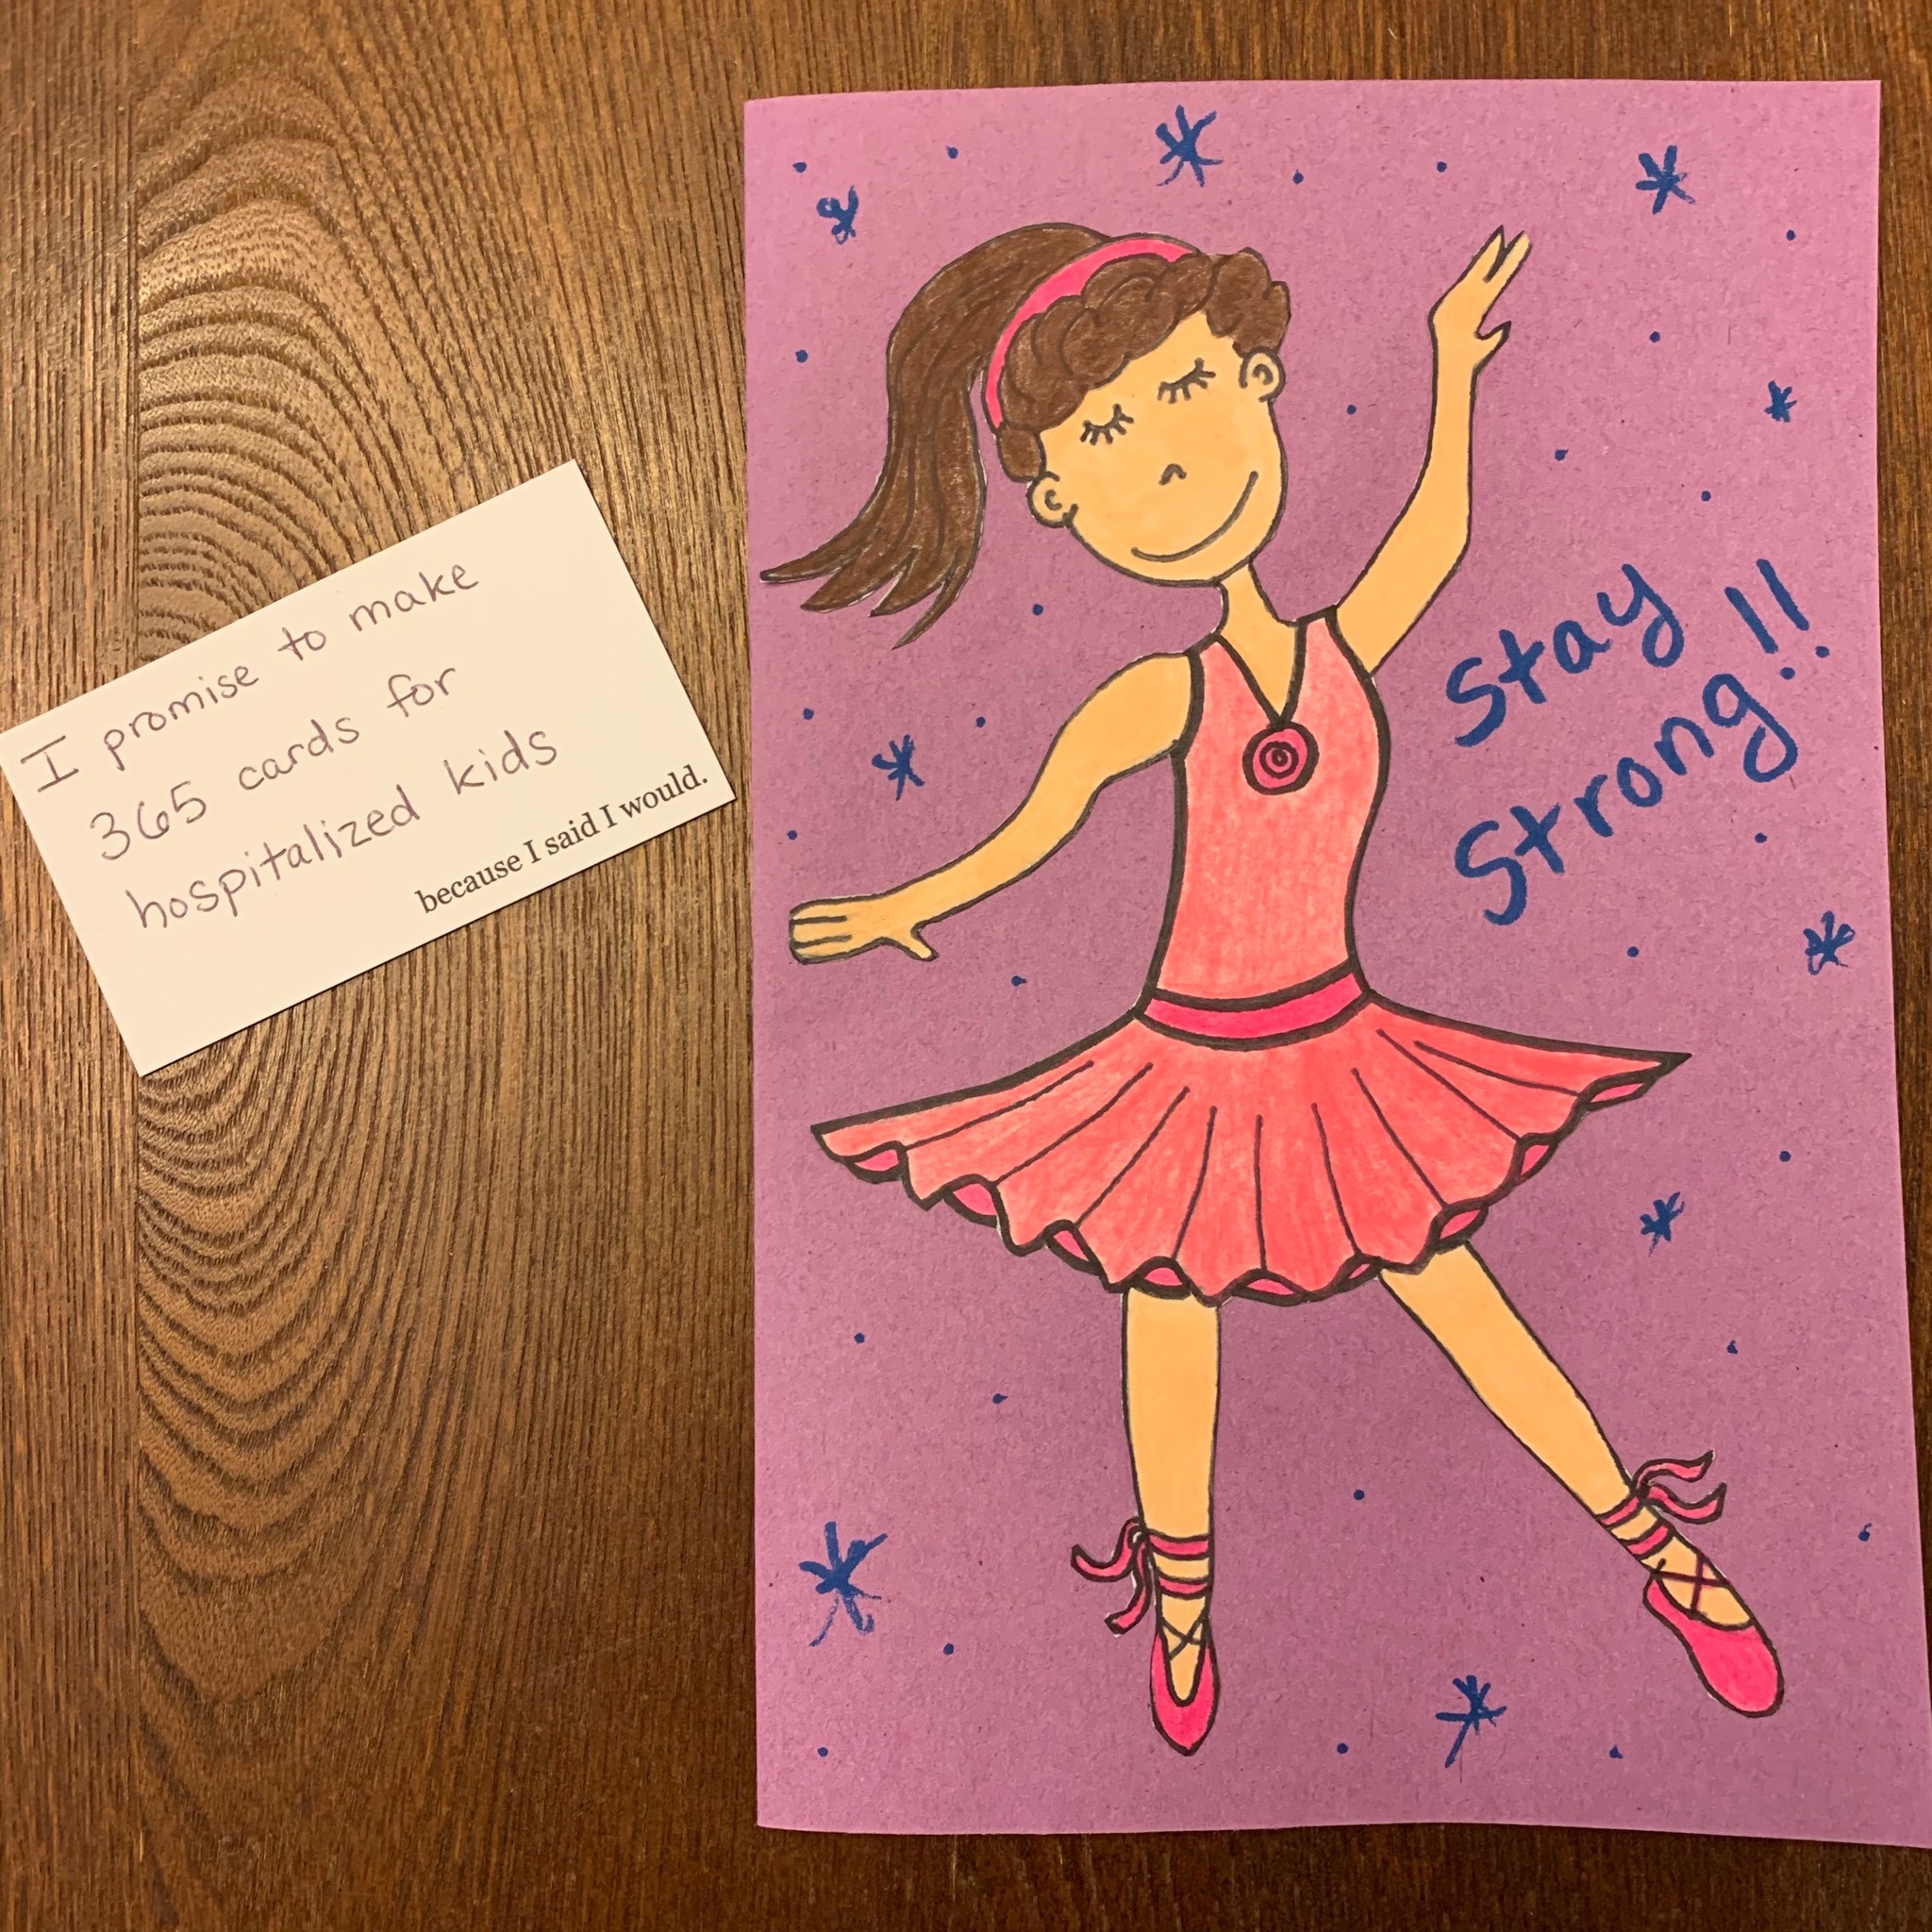 I promise to make
365 cards for
hospitalized kids
because I said I would.
Stay
Strong!!